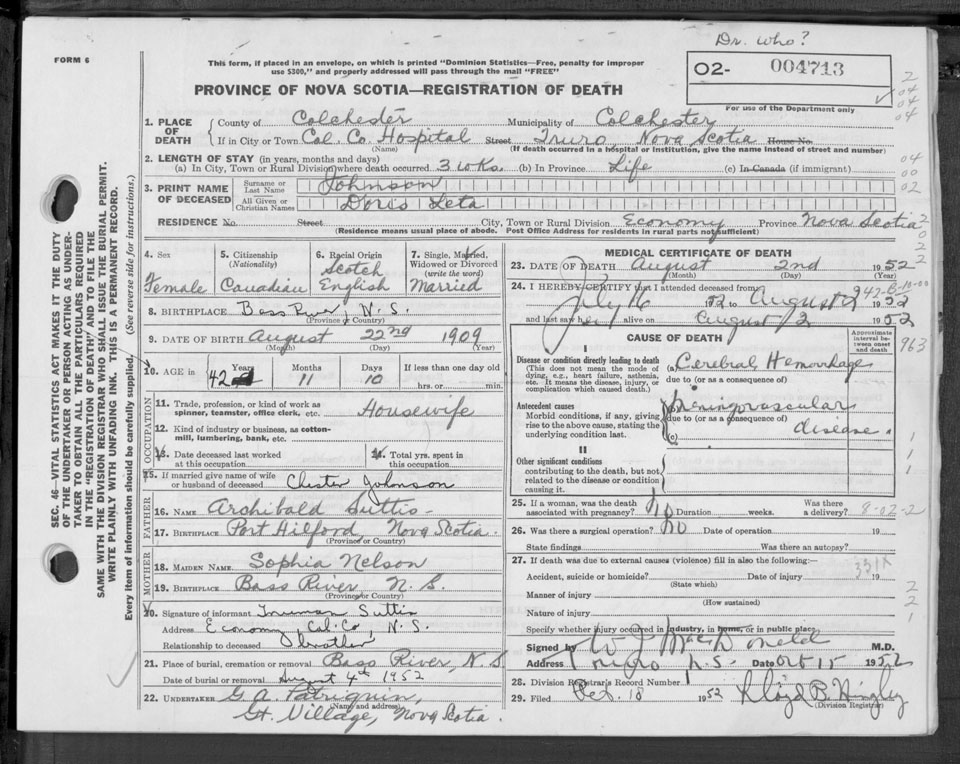 Dr. who?
FORM 6
This form, if placed in an envelope, on which is printed "Dominion Statistics—Free, penalty for improper
use $300," and properly addressed will pass through the mail "FREE"
O2- 004713
PROVINCE OF NOVA SCOTIA—REGISTRATION OF DEATH
For use of the Department only
2
04
04
04
1. PLACE OF DEATH { County of Colchester Municipality of Colchester
If in City or Town Col. Co. Hospital Street Truro, Nova Scotia House No.
(Name) (If death occurred in a hospital or institution, give the name instead of street and number)
2. LENGTH OF STAY (in years, months and days)
(a) In City, Town or Rural Division where death occurred 3 wks. (b) In Province Life (c) In Canada (if immigrant)
04
00
02
3. PRINT NAME OF DECEASED { Surname or Last Name Johnson
All Given or Christian Names Doris Leta
RESIDENCE No. Street City, Town or Rural Division Economy Province Nova Scotia
(Residence means usual place of abode. Post Office Address for residents in rural parts not sufficient)
2
0
2
2
SEC. 46—VITAL STATISTICS ACT MAKES IT THE DUTY
OF THE UNDERTAKER OR PERSON ACTING AS UNDER-
TAKER TO OBTAIN ALL THE PARTICULARS REQUIRED
IN THE "REGISTRATION OF DEATH" AND TO FILE THE
SAME WITH THE DIVISION REGISTRAR WHO SHALL ISSUE THE BURIAL PERMIT.
WRITE PLAINLY WITH UNFADING INK. THIS IS A PERMANENT RECORD.
Every item of information should be carefully supplied. (See reverse side for instructions.)
4. Sex
Female
5. Citizenship
(Nationality)
Canadian
6. Racial Origin
Scotch
English
7. Single, Married,
Widowed or Divorced
(write the word)
Married
8. BIRTHPLACE Bass River, N.S.
(Province or Country)
9. DATE OF BIRTH August 22nd 1909
(Month) (Day) (Year)
10. AGE in { Years Months Days If less than one day old
42 11 10 hrs. or min.
OCCUPATION
11. Trade, profession, or kind of work as
spinner, teamster, office clerk, etc. Housewife
12. Kind of industry or business, as cotton-
mill, lumbering, bank, etc.
13. Date deceased last worked
at this occupation
14. Total yrs. spent in
this occupation
15. If married give name of wife
or husband of deceased Chester Johnson
FATHER
16. NAME Archibald Suttis
17. BIRTHPLACE Port Hilford, Nova Scotia.
(Province or Country)
MOTHER
18. MAIDEN NAME Sophia Nelson
19. BIRTHPLACE Bass River N.S.
(Province or Country)
20. Signature of informant Truman Suttis
Address Economy, Col. Co, N.S.
Relationship to deceased brother
21. Place of burial, cremation or removal Bass River, N.S.
Date of burial or removal August 4th 1952
22. UNDERTAKER G.A. Patriquin,
(Name and address)
Gt. Village, Nova Scotia.
MEDICAL CERTIFICATE OF DEATH
23. DATE OF DEATH August 2nd 1952
(Month) (Day) (Year)
24. I HEREBY CERTIFY that I attended deceased from
July 16 1952 to August 2 1952
and last saw her alive on August 2 1952
CAUSE OF DEATH
Approximate
interval be-
tween onset
and death
963
I
Disease or condition directly leading to death
(This does not mean the mode of
dying, e.g., heart failure, asthenia,
etc. It means the disease, injury, or
complication which caused death.)
(a) Cerebral Hemorrhage
due to (or as a consequence of)
Antecedent causes
Morbid conditions, if any, giving
rise to the above cause, stating the
underlying condition last.
(b) Meningovascular
due to (or as a consequence of)
disease.
(c)
1
1
II
Other significant conditions
contributing to the death, but not
related to the disease or condition
causing it.
25. If a woman, was the death
associated with pregnancy? No Duration weeks. Was there
a delivery? 8-02-2
26. Was there a surgical operation? No Date of operation 19
State findings Was there an autopsy?
27. If death was due to external causes (violence) fill in also the following:—
331X
Accident, suicide or homicide? Date of injury 19
(State which)
Manner of injury
(How sustained)
Nature of injury
2
2
1
Specify whether injury occurred in industry, in home, or in public place
Signed by W J MacDonald M.D.
Address Truro N.S. Date Oct 15 1952
28. Division Registrar's Record Number
29. Filed Oct. 18 1952 Lloyd B. Hingley
(Division Registrar)